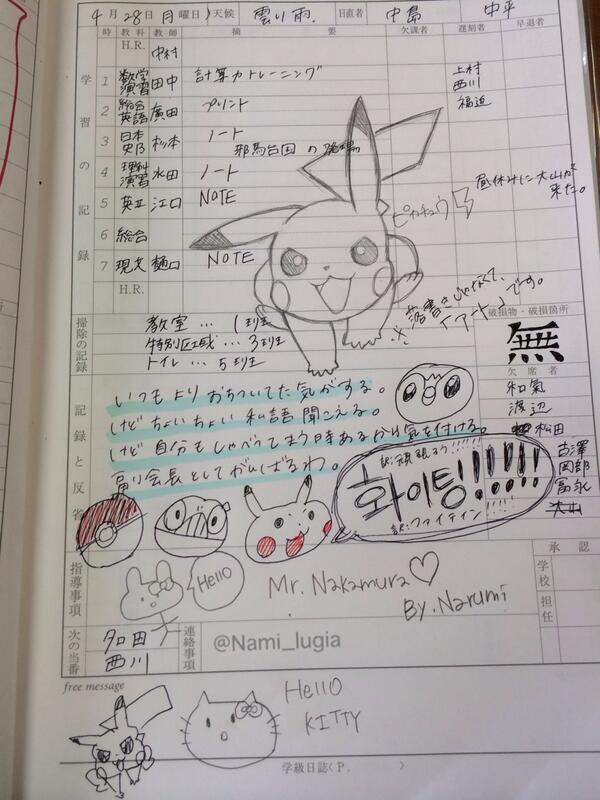 4月28日(月曜日) 天候 雲り雨. 日直者 中島 中平
時 教科 教師 摘要 欠課者 遅刻者 早退者
H.R. 中村
学習の記録
1 数学演習 田中 計算力トレーニング 上村
西川
2 総合英語 廣田 プリント 福迫
3 日本史B 杉本 ノート
邪馬台国の
4 理科演習 水田 ノート
5 英II 江口 NOTE
6 総合
7 現文 樋口 NOTE
H.R.
ピカチュウ
昼休みに大山が
来た。
※落書きじゃなくて、
「アート」です。
掃除の記録
教室 … 1班
特別区域 … 3班
トイレ … 5班
破損物・破損箇所
無
欠席者
和氣
渡辺
松田
古澤
岡部
富永
大山
記録と反省
いつもよりおちついてた気がする。
けどちょいちょい私語聞こえる。
けど自分もしゃべってまう時あるから気を付ける。
副会長としてがんばるわ。
訳:頑張ろう!!!!!!
화이팅!!!!!
訳:ファイティン!!!!
指導事項
Hello
Mr. Nakamura♡
By. Narumi
承認
学校
担任
次の当番
知田
西川
連絡事項
@Nami_lugia
free message
Hello
KITTY
学級日誌(P. )